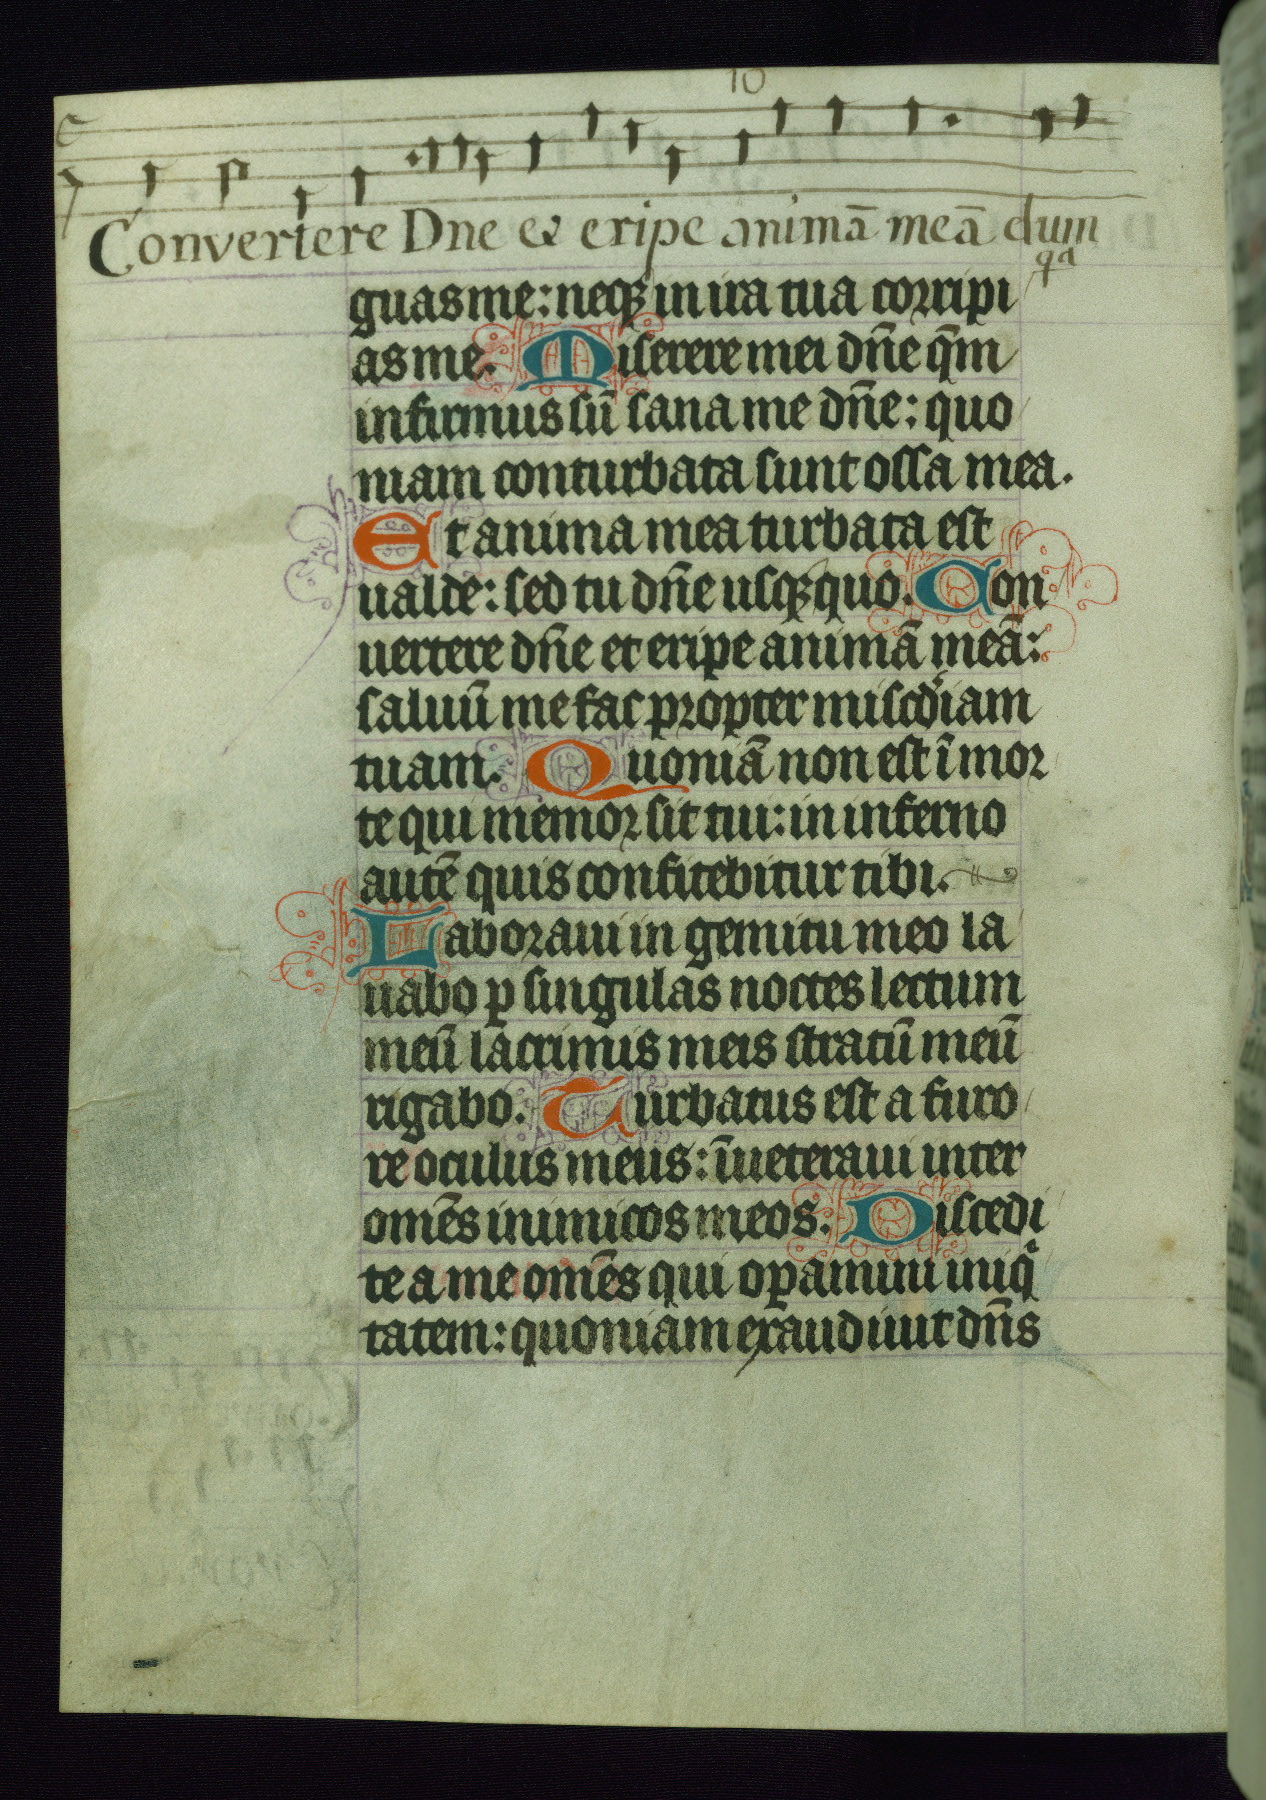 10
Convertere Dne et eripe animā meā dum
qa
guas me: neq3 in ira tua corripi
as me. Miserere mei dn̄e qm̄
infirmus sū sana me dn̄e: quo
niam conturbata sunt ossa mea.
Et anima mea turbata est
ualde: sed tu dn̄e usq3quo. Con
uertere dn̄e et eripe animā meā:
saluū me fac propter miscd̓iam
tuam. Quoniā non est ī mor
te qui memor sit tui: in inferno
autē quis confitebitur tibi.
Laboraui in gemitu meo la
uabo ꝑ singulas noctes lectum
meū lacrimis meis stratū meū
rigabo. Turbatus est a furo
re oculus meus: īueteraui inter
om̄es inimicos meos. Discedi
te a me om̄es qui oꝑamini iniqͥ
tatem: quoniam exaudiuit dn̄s